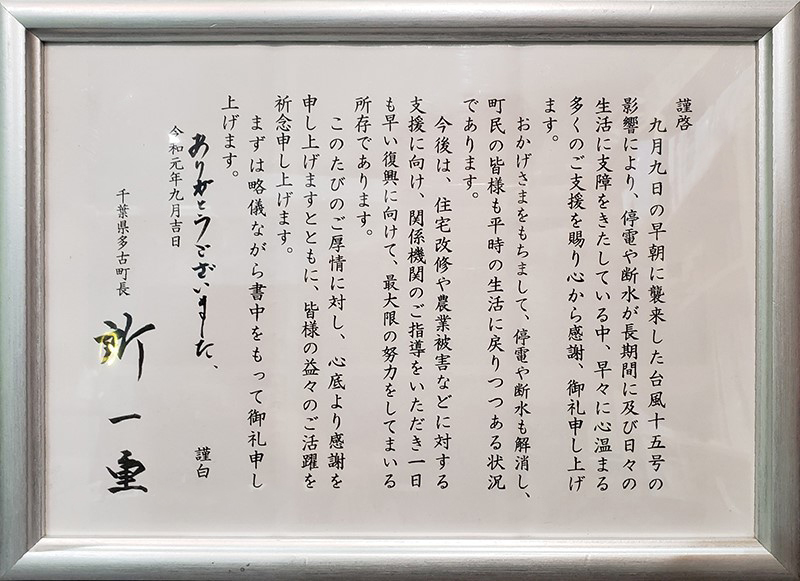 謹啓
九月九日の早朝に襲来した台風十五号の
影響により、停電や断水が長期間に及び日々の
生活に支障をきたしている中、早々に心温まる
多くのご支援を賜り心から感謝、御礼申し上げ
ます。
おかげさまをもちまして、停電や断水も解消し、
町民の皆様も平時の生活に戻りつつある状況
であります。
今後は、住宅改修や農業被害などに対する
支援に向け、関係機関のご指導をいただき一日
も早い復興に向けて、最大限の努力をしてまいる
所存であります。
このたびのご厚情に対し、心底より感謝を
申し上げますとともに、皆様の益々のご活躍を
祈念申し上げます。
まずは略儀ながら書中をもって御礼申し
上げます。
ありがとうございました、
謹白
令和元年九月吉日
千葉県多古町長
所一重